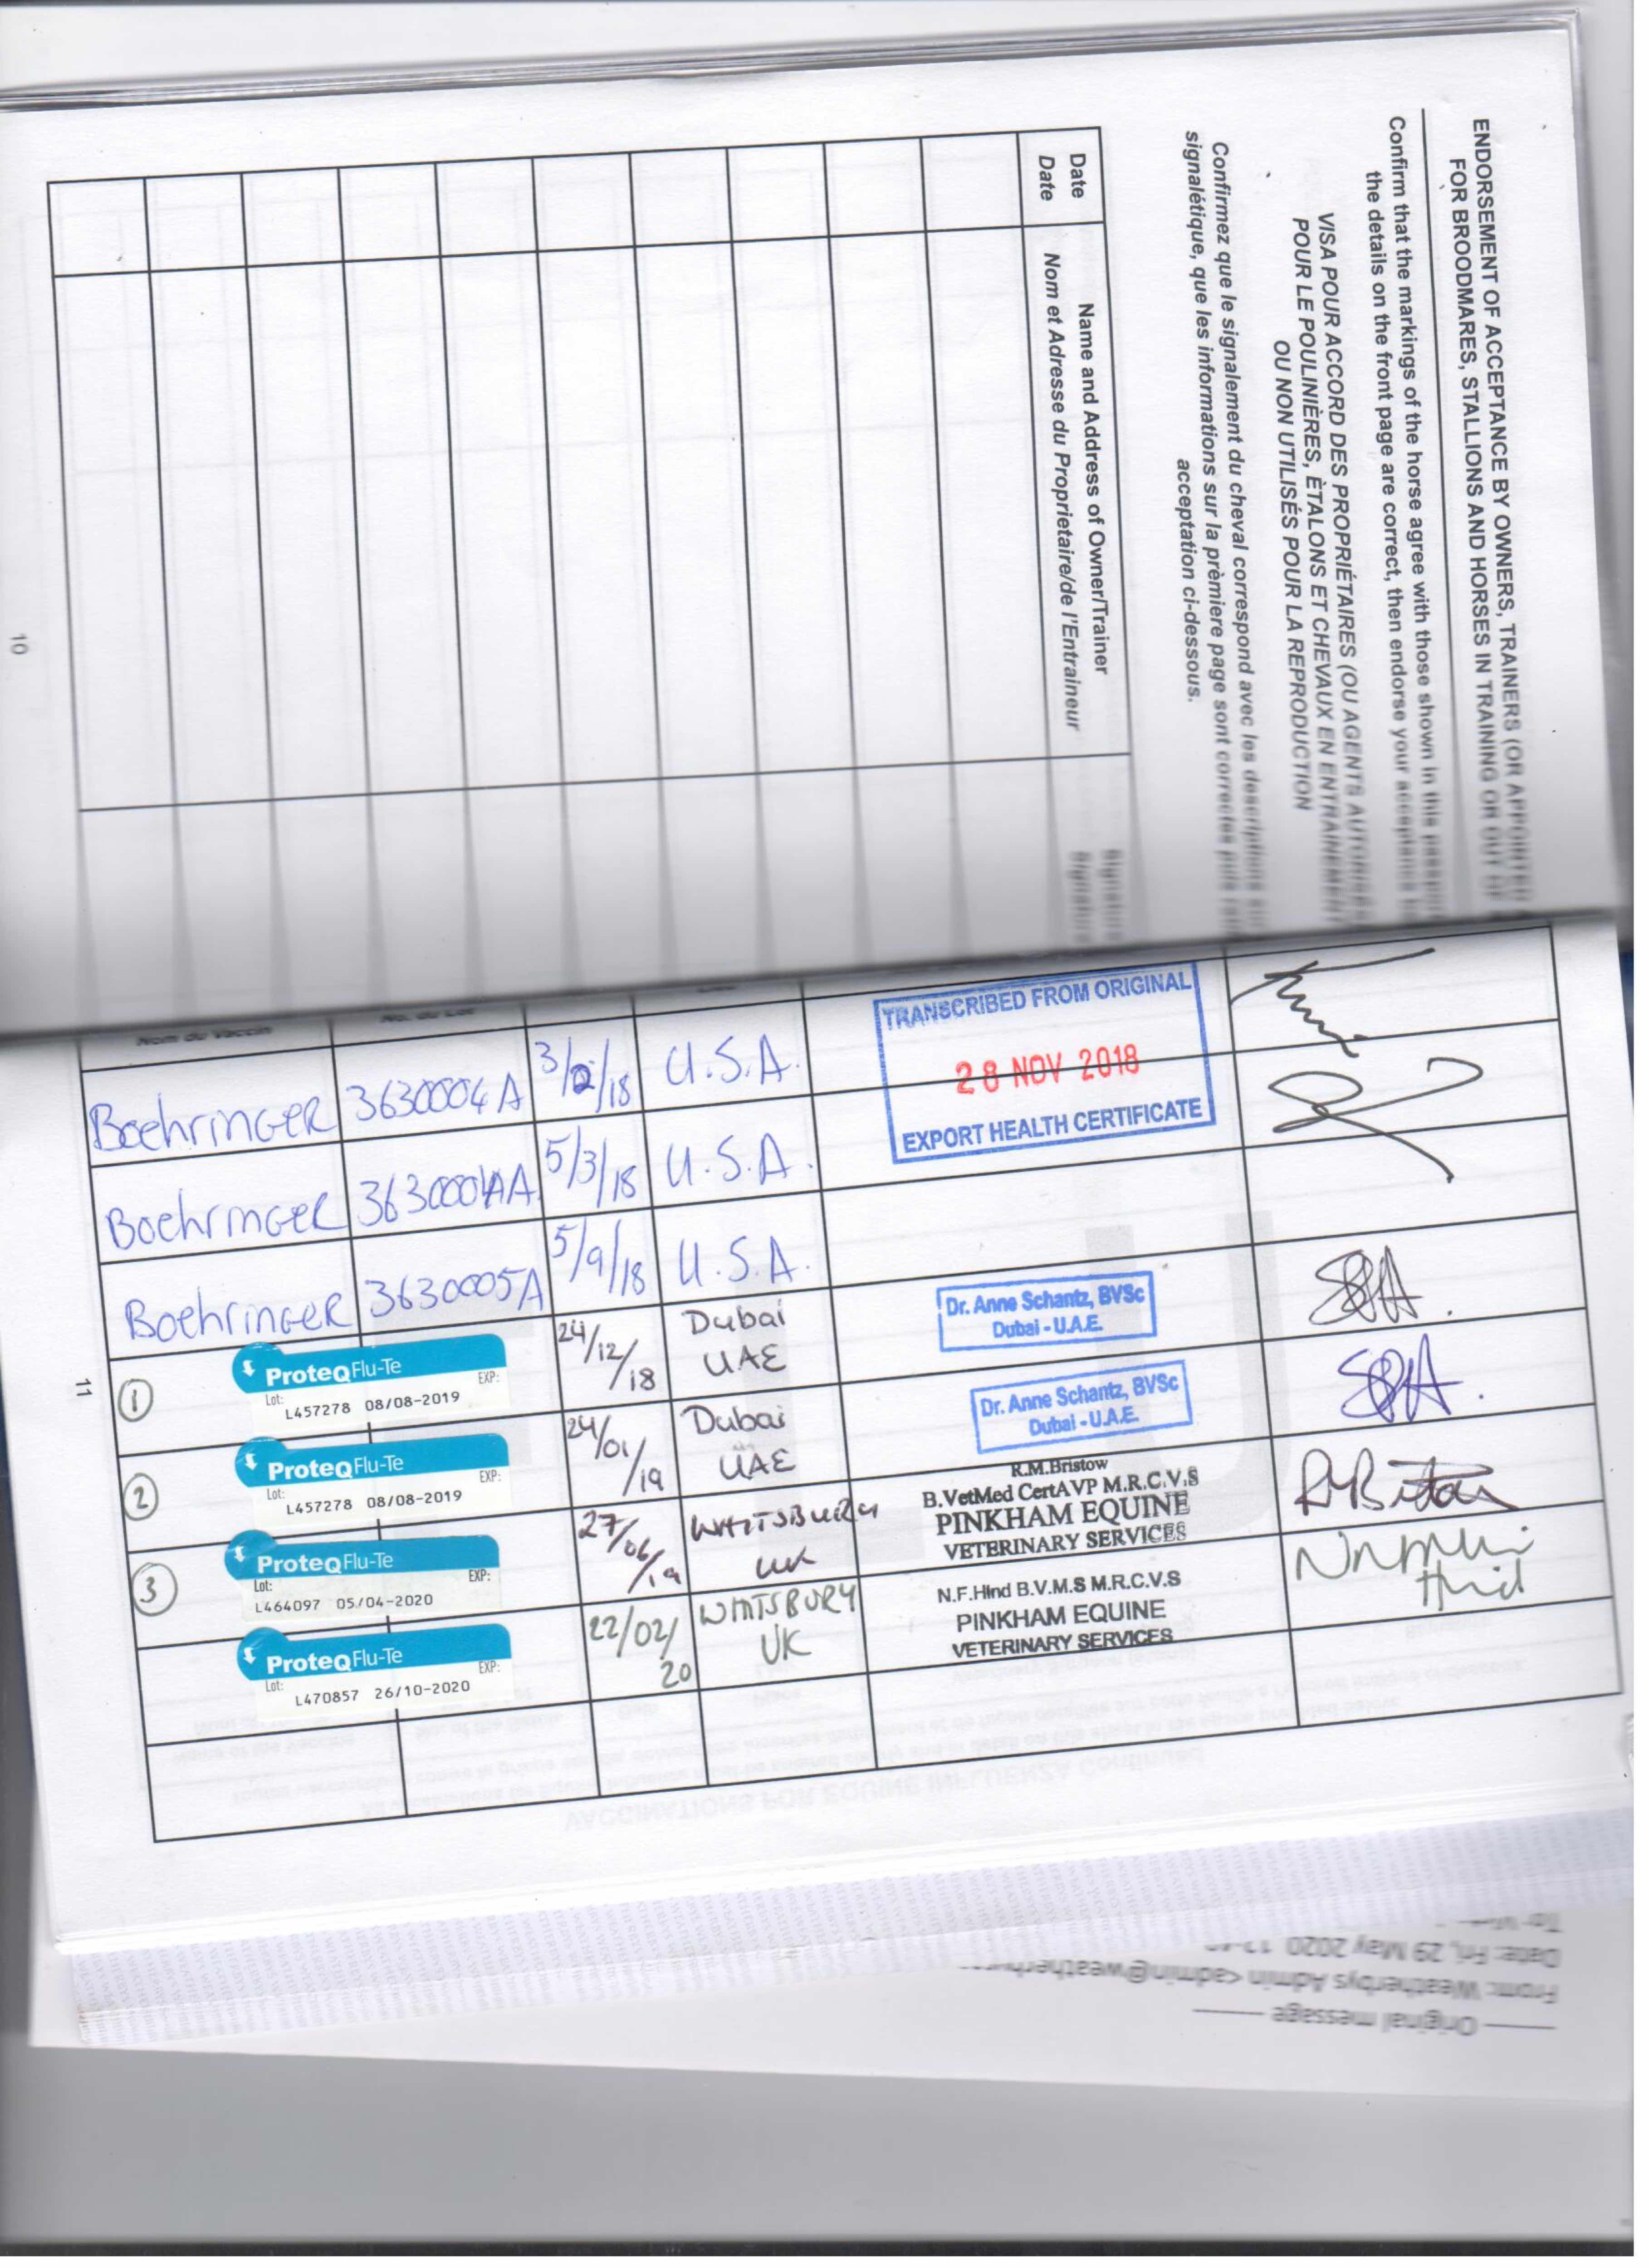 ENDORSEMENT OF ACCEPTANCE BY OWNERS, TRAINERS (OR APPOINTED
FOR BROODMARES, STALLIONS AND HORSES IN TRAINING OR OUT OF
Confirm that the markings of the horse agree with those shown in this
the details on the front page are correct, then endorse your acceptance
VISA POUR ACCORD DES PROPRIÉTAIRES (OU AGENTS
POUR LE POULINIÈRES, ÈTALONS ET CHEVAUX EN ENTRAÎNEMENT
OU NON UTILISÉS POUR LA REPRODUCTION
Confirmez que le signalement du cheval correspond avec les descriptions
signalétique, que les informations sur la prèmiere page sont correctes puis
acceptation ci-dessous.
Date
Date
Name and Address of Owner/Trainer
Nom et Adresse du Proprietaire/de l'Entraineur
Signature
Signature
10
Nom du Vaccin
No. du Lot
TRANSCRIBED FROM ORIGINAL
28 NOV 2018
EXPORT HEALTH CERTIFICATE
Boehringer 3630004A 3/2/18 U.S.A.
Boehringer 5/3/18 U.S.A.
Boehringer 3630005A 5/9/18 U.S.A.
1
ProteqFlu-Te
Lot: EXP:
L457278 08/08-2019
24/12/18
Dubai
UAE
Dr. Anne Schantz, BVSc
Dubai - U.A.E.
2
ProteqFlu-Te
Lot: EXP:
L457278 08/08-2019
24/01/19
Dubai
UAE
Dr. Anne Schantz, BVSc
Dubai - U.A.E.
3
ProteqFlu-Te
Lot: EXP:
L464097 05/04-2020
27/06/19
WHITSBURY
UK
R.M.Bristow
B.VetMed CertAVP M.R.C.V.S
PINKHAM EQUINE
VETERINARY SERVICES
ProteqFlu-Te
Lot: EXP:
L470857 26/10-2020
22/02/20
WHITSBURY
UK
N.F.Hind B.V.M.S M.R.C.V.S
PINKHAM EQUINE
VETERINARY SERVICES
11
VACCINATIONS FOR EQUINE INFLUENZA Continued
Original message
From: Weatherbys Admin <admin@weatherbys
Date: Fri, 29 May 2020
To: